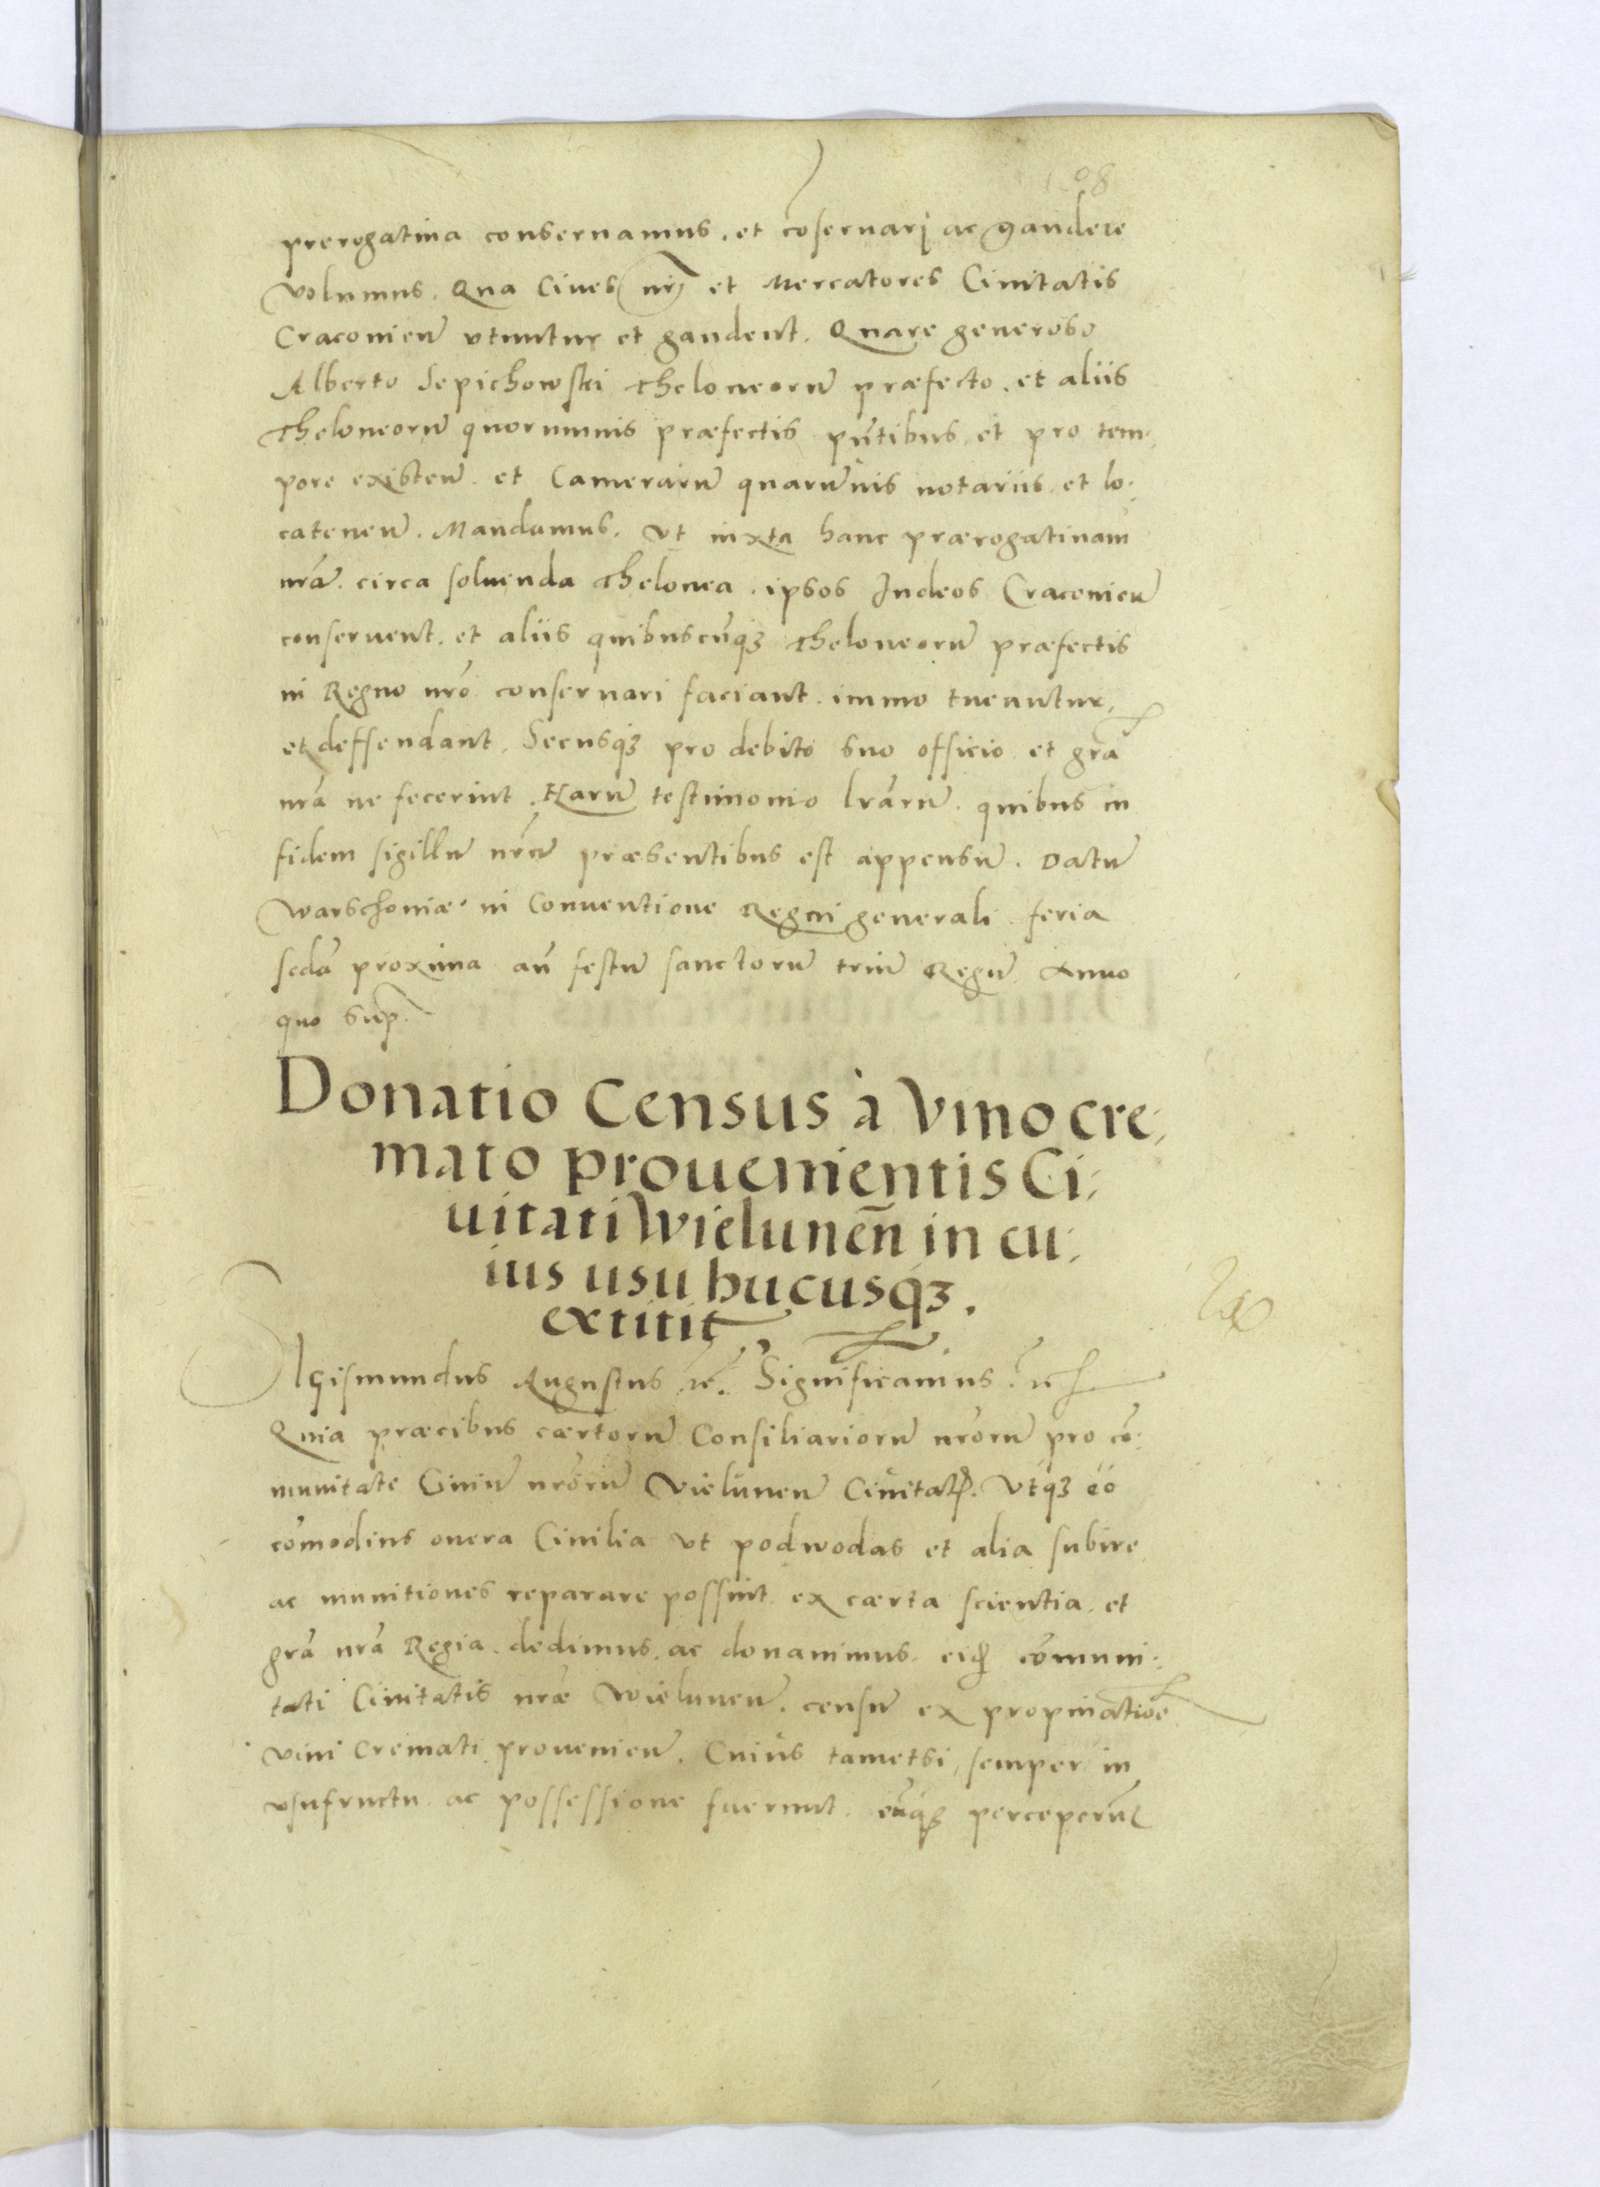 108
prerogatiua conseruamus. et cōseruarj ac gaudere
volumus. Qua Ciues nrj et Mercatores Ciuitatis
Cracouieñ vtuntur et gaudent. Quare generoso
Alberto Sepichowski Theloneorū præfecto. et aliis
Theloneorū quorumuis præfectis pñtibus et pro tem-
pore existeñ. et Camerarū quarūuis notariis et lo-
cateneñ. Mandamus. vt iuxta hanc prærogatiuam
nrā. circa soluenda Thelonea. ipsos Iudeos Cracouieñ
conseruent. et aliis quibuscūqȝ Theloneorū præfectis
in Regno nrō conseruari faciant. immo tueantur,
et deffendant. Secusqȝ pro debito suo officio et grā
nrā ne fecerint. Harū testimonio lrārū. quibus in
fidem sigillū nrū præsentibus est appensū. Datū
Warschouiæ in Conuentione Regni generali feria
scdā proxima añ festū sanctorū triū Regū Anno
quo sup.
Donatio Census à Vino cre-
mato prouenientis Ci-
uitati Wieluneñ in cu-
ius usu hucusqȝ.
extitit.
SIgismundus Augustus ꝛc. Significamus ꝛc
Quia præcibus cærtorū Consiliariorū nrōrū pro cō-
munitate Ciuiū nrōrū Vieluneñ Ciuitatꝭ. Vtqȝ eo
cōmodius onera Ciuilia vt podwodas et alia subire
ac munitiones reparare possint ex cærta scientia. et
grā nrā Regia. dedimus. ac donauimus. eidꝫ cōmuni-
tati Ciuitatis nrǣ Wieluneñ. censū ex propinatiōe
vini cremati prouenieñ. Cuius tametsi semper in
vsufructu ac possessione fuerunt. eūqȝ perceperūt